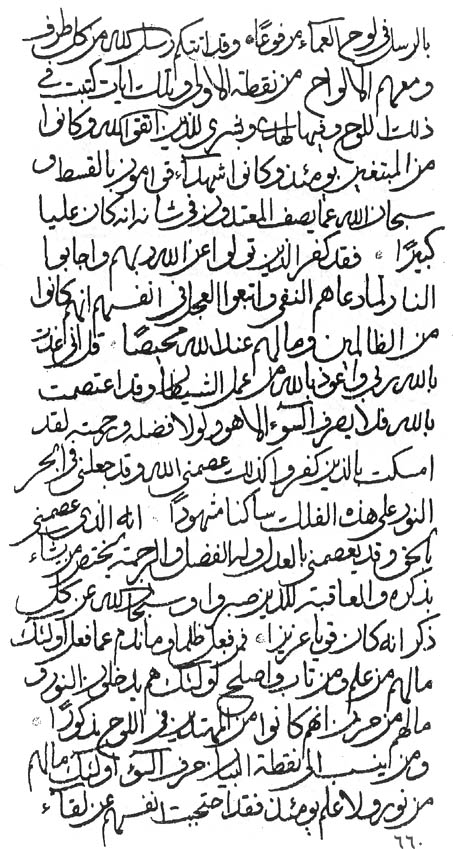 بالرسا فى لوح العماء مرفوعًا * وقد اتتكم رسل الله من كل طرف
ومعهم الالواح من نقطة الاولى وتلك ايات كتبت فى
ذلك اللوح وفيها لهدى وبشرى للذين اتقوا الله وكانوا
من المبتغين يومئذ وكانوا شهداء قوامون بالقسط و
سبحان الله عما يصف المعتدون فى شانه انه كان عليا
كبيرًا * فقد كفر الذين تولوا عن الله ربهم واجابوا
النار لما دعاهم النفى واتبعوا العجل فى انفسهم انهم كانوا
من الظالمين وما لهم عند الله محيصًا قل انى عذت
بالله ربى واعوذ بالله من عمل الشيطان وقد اعتصمت
بالله فلا يصرف السوء الا هو ولولا فضله ورحمته لقد
امسكت بالذين كفروا كذلك عصمنى الله وقد جعلنى فى ابحر
النور على هذه الفلك ساكنا مشهودًا انه الذى عصمنى
بالحق وقد يعصمنى بالعدل وله الفضل والرحمة يختص من يشاء
بذكره والعاقبة للذين صبروا وسبحان الله عن كل
ذكر انه كان قويا عزيزا * فمن فعل ظلما وما ندم عما فعل اولئك
ما لهم من علم ومن تاب واصلح اولئك هم يدخلون النور و
ما لهم من حزن انهم كانوا من المهتدين فى اللوح مذكورًا *
ومن ينسب الى نقطة البيان حرف السوء اولئك ما لهم
من نور ولا علم يومئذ فقد احتجبت انفسهم عن لقاء
٦٦٠